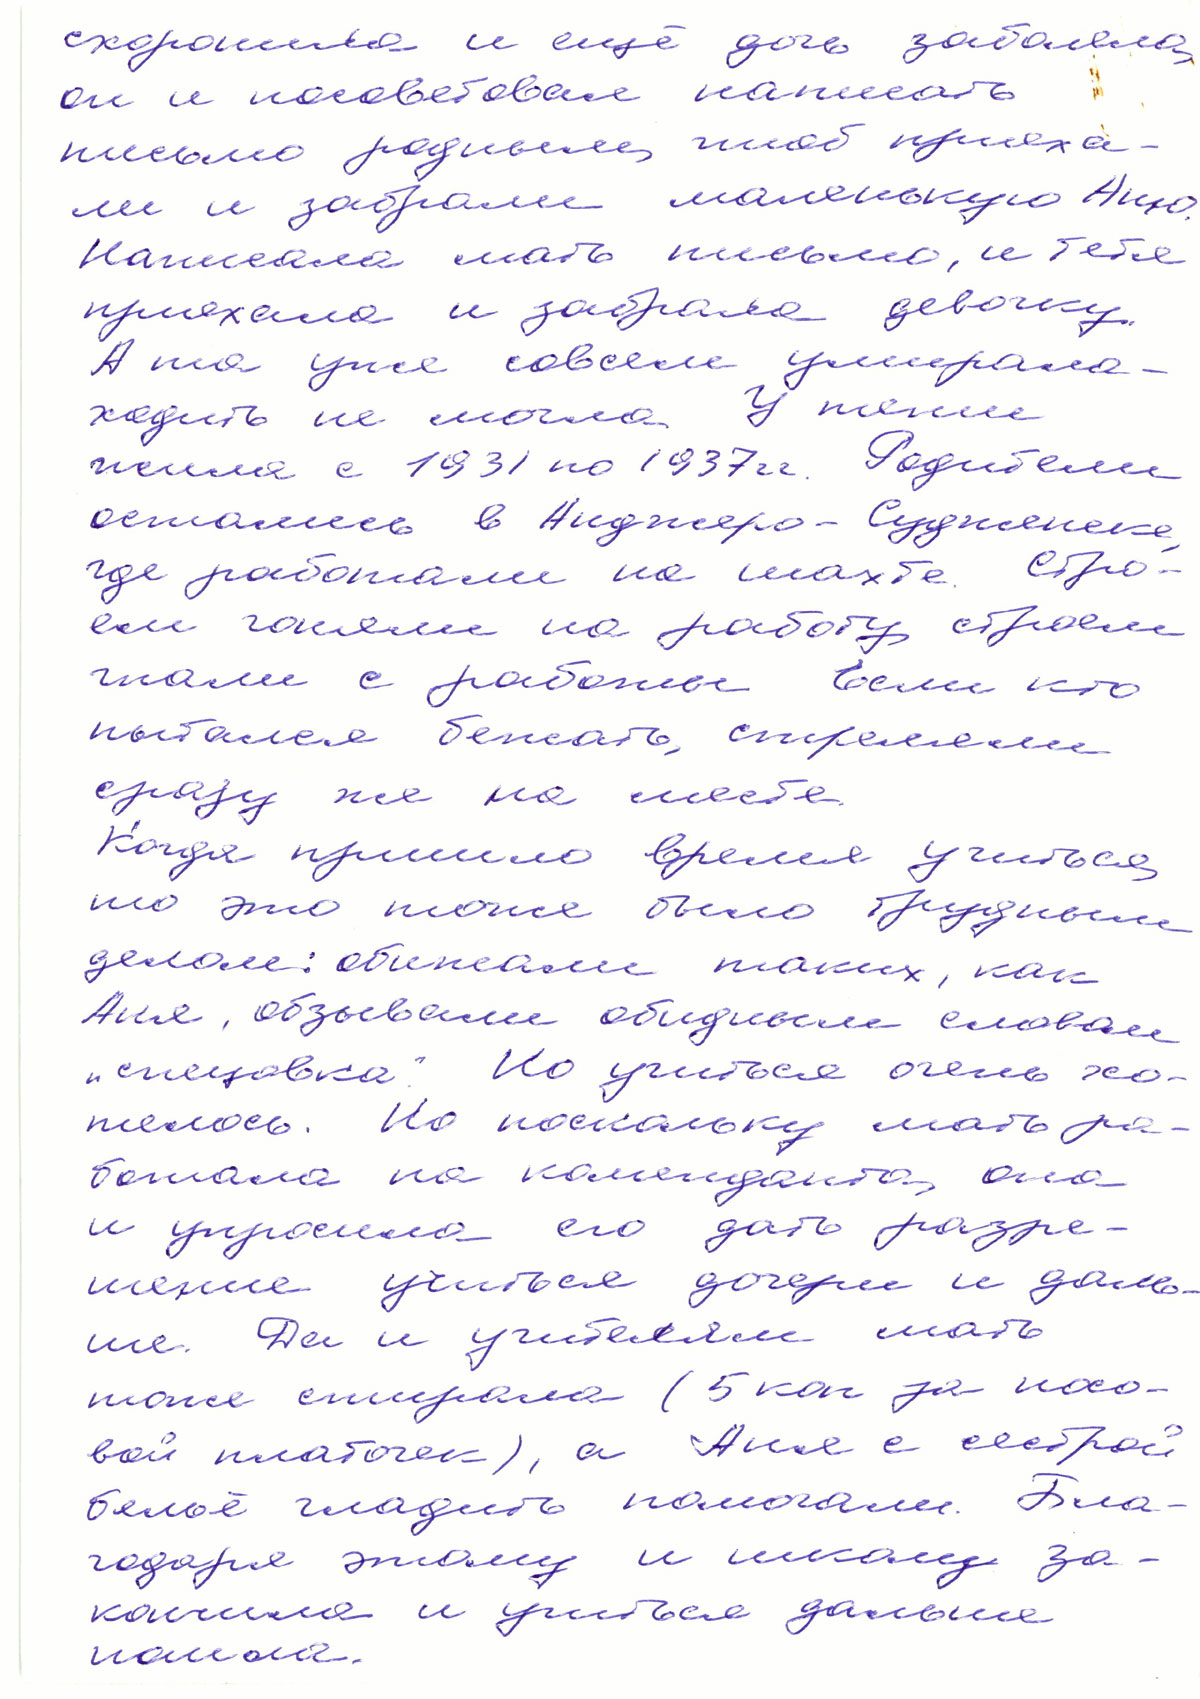 схоронила и ещё дочь заболела,
он и посоветовал написать
письмо родным, чтоб приеха-
ли и забрали маленькую Аню.
Написала мать письмо, и тётя
приехала и забрала девочку.
А та уже совсем умирала -
ходить не могла. У тёти
жила с 1931 по 1937 гг. Родители
остались в Анджеро-Судженске,
где работали на шахте. Стро-
ем гоняли на работу, строем
гнали с работы. Если кто
пытался бежать, стреляли
сразу же на месте.
Когда пришло время учиться,
то это тоже было трудным
делом: обижали таких, как
Аня, обзывали обидным словом
„спецовка". Но учиться очень хо-
телось. Но поскольку мать ра-
ботала на коменданта, она
и упросила его дать разре-
шение учиться дочери и даль-
ше. Да и учителям мать
тоже стирала (5 коп за носо-
вой платочек), а Аня с сестрой
бельё гладить помогали. Бла-
годаря этому и школу за-
кончила и учиться дальше
пошла.